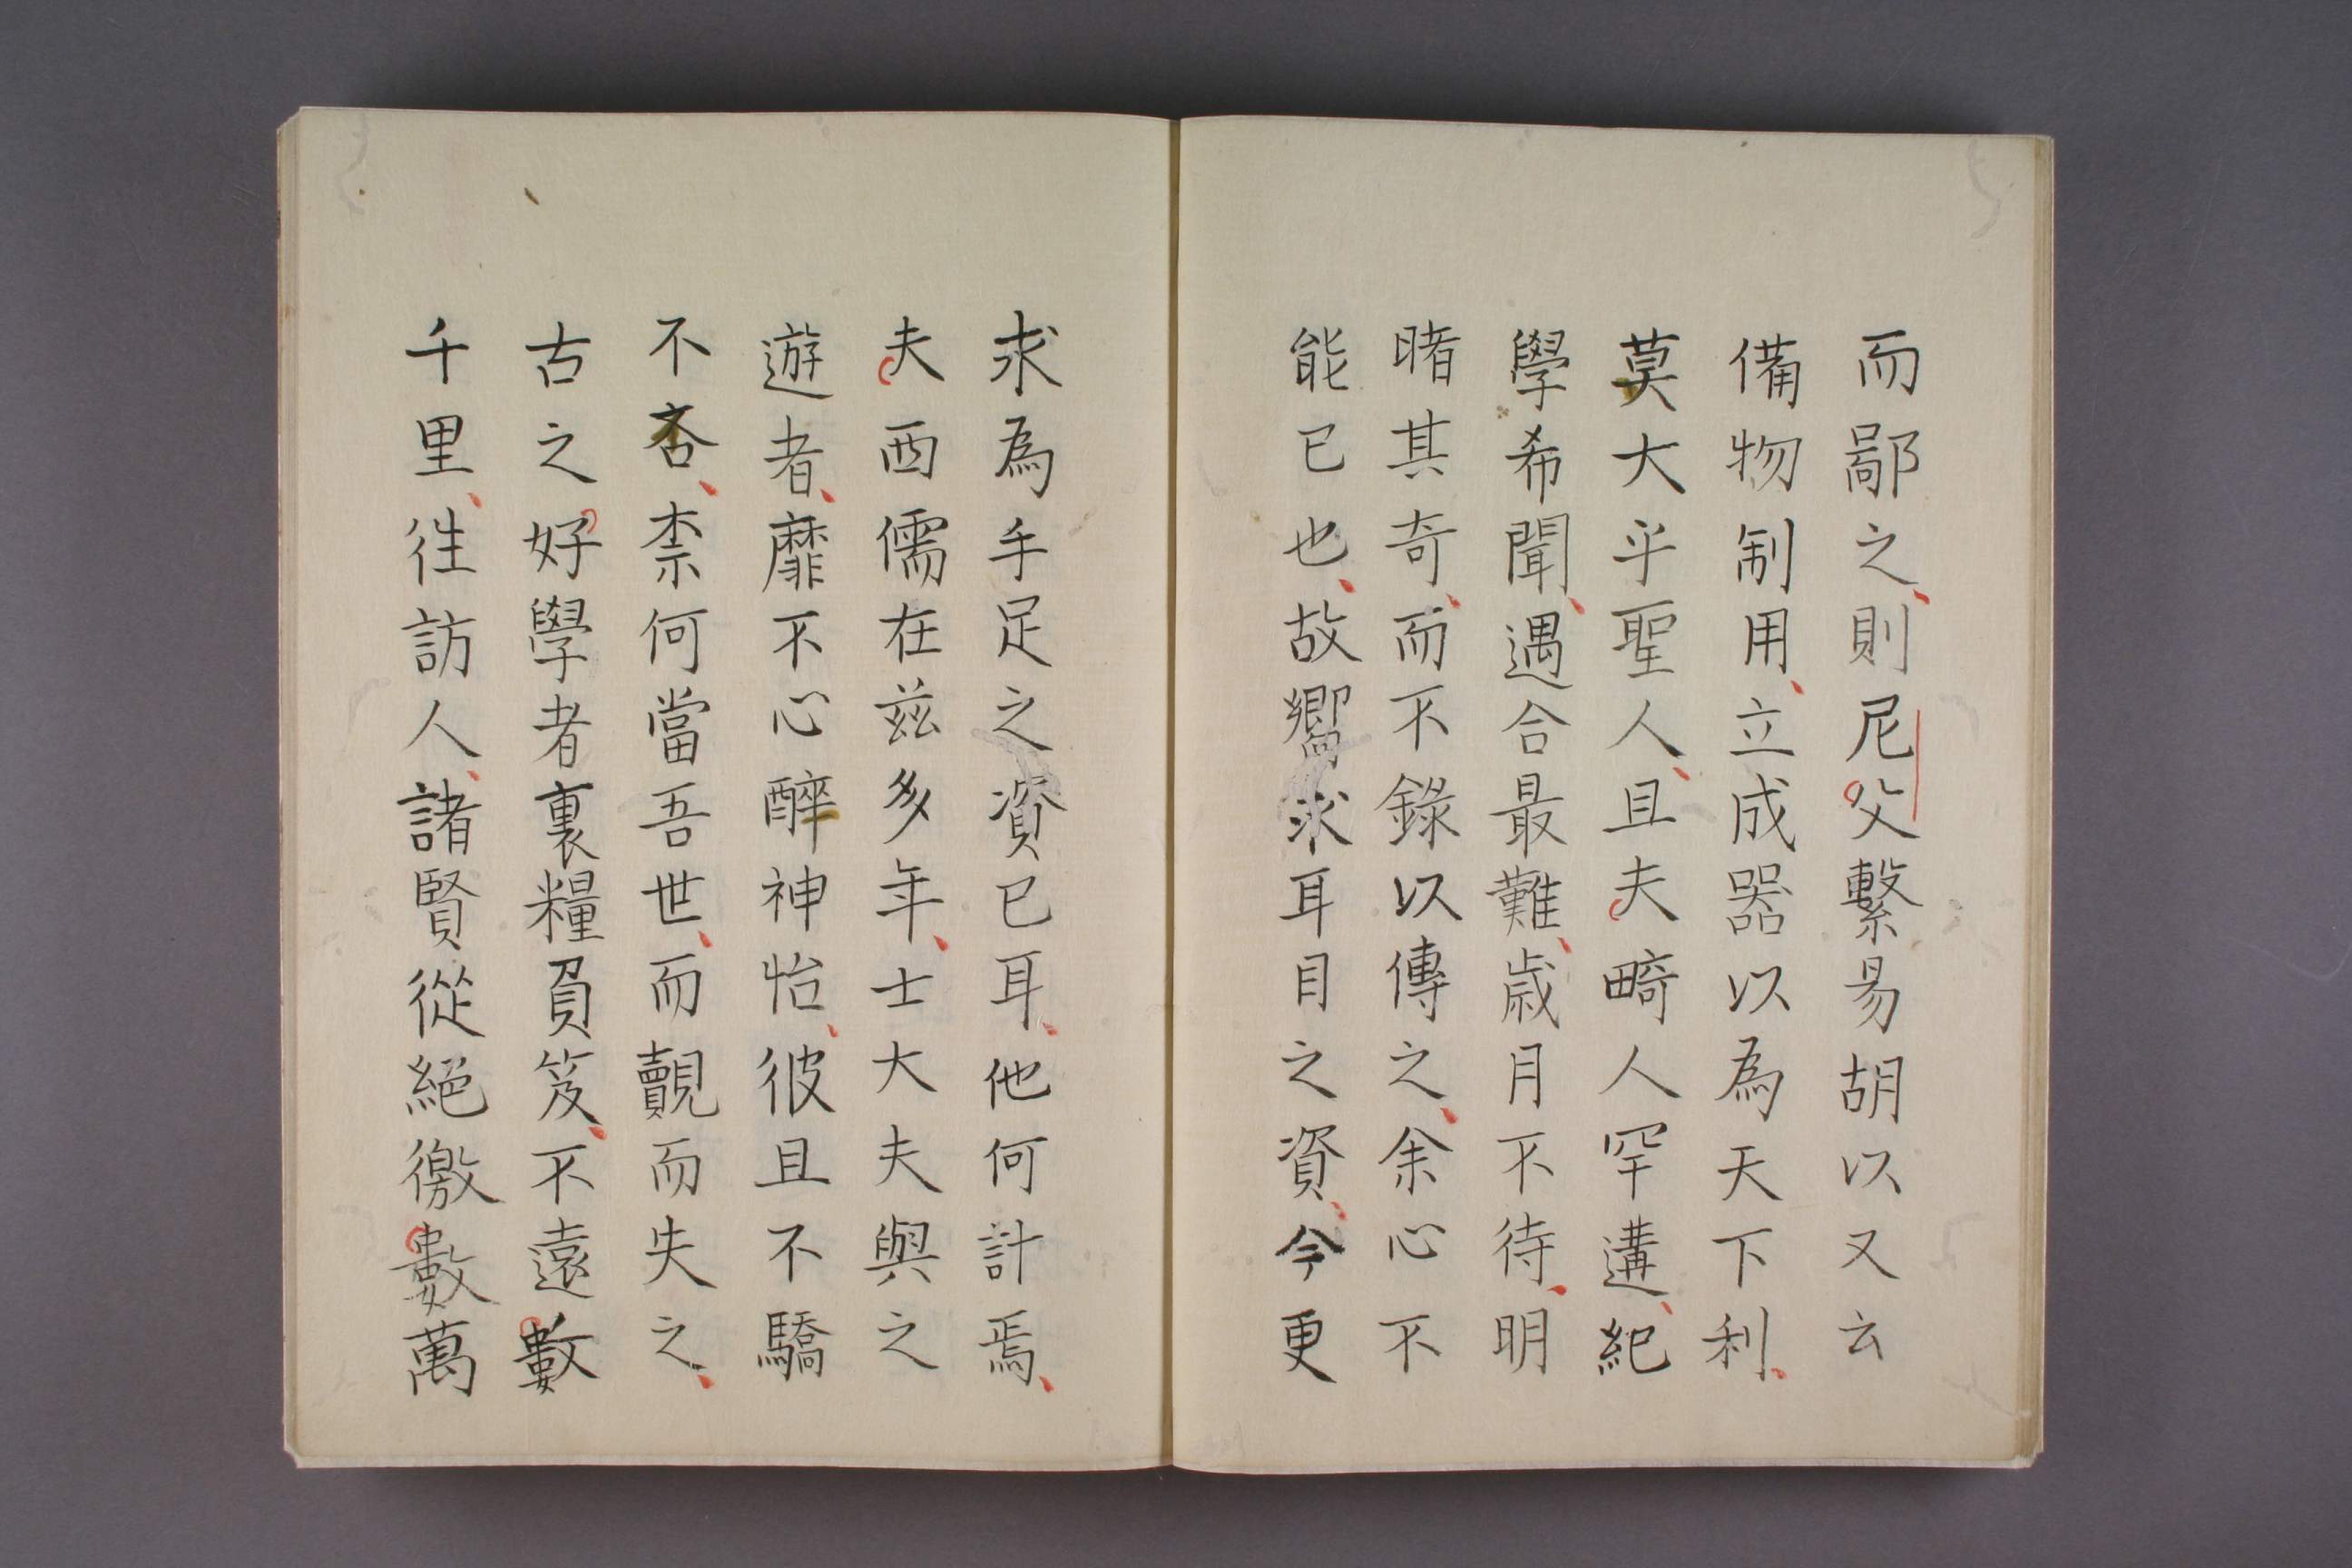 而鄙之、則尼父繫易胡以又云
備物制用、立成器以為天下利、
莫大乎聖人、且夫畸人罕遘、紀
學希聞、遇合最難、歳月不待、明
睹其奇、而不錄以傳之、余心不
能已也、故嚮求耳目之資、今更
求為手足之資已耳、他何計焉、
夫西儒在茲多年、士大夫與之
遊者、靡不心醉神怡、彼且不驕
不吝、柰何當吾世、而覿而失之、
古之好學者裏糧負笈、不遠數
千里、往訪人、諸賢從絕徼數萬